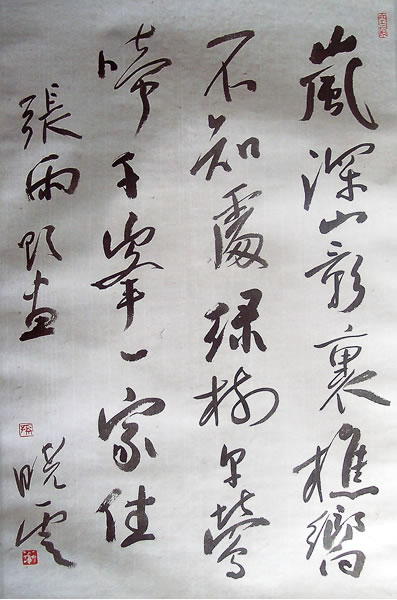 嵐深山影裏樵響
不知處綠樹早鶯
啼千峯一家住
張雨題畫
曉雲